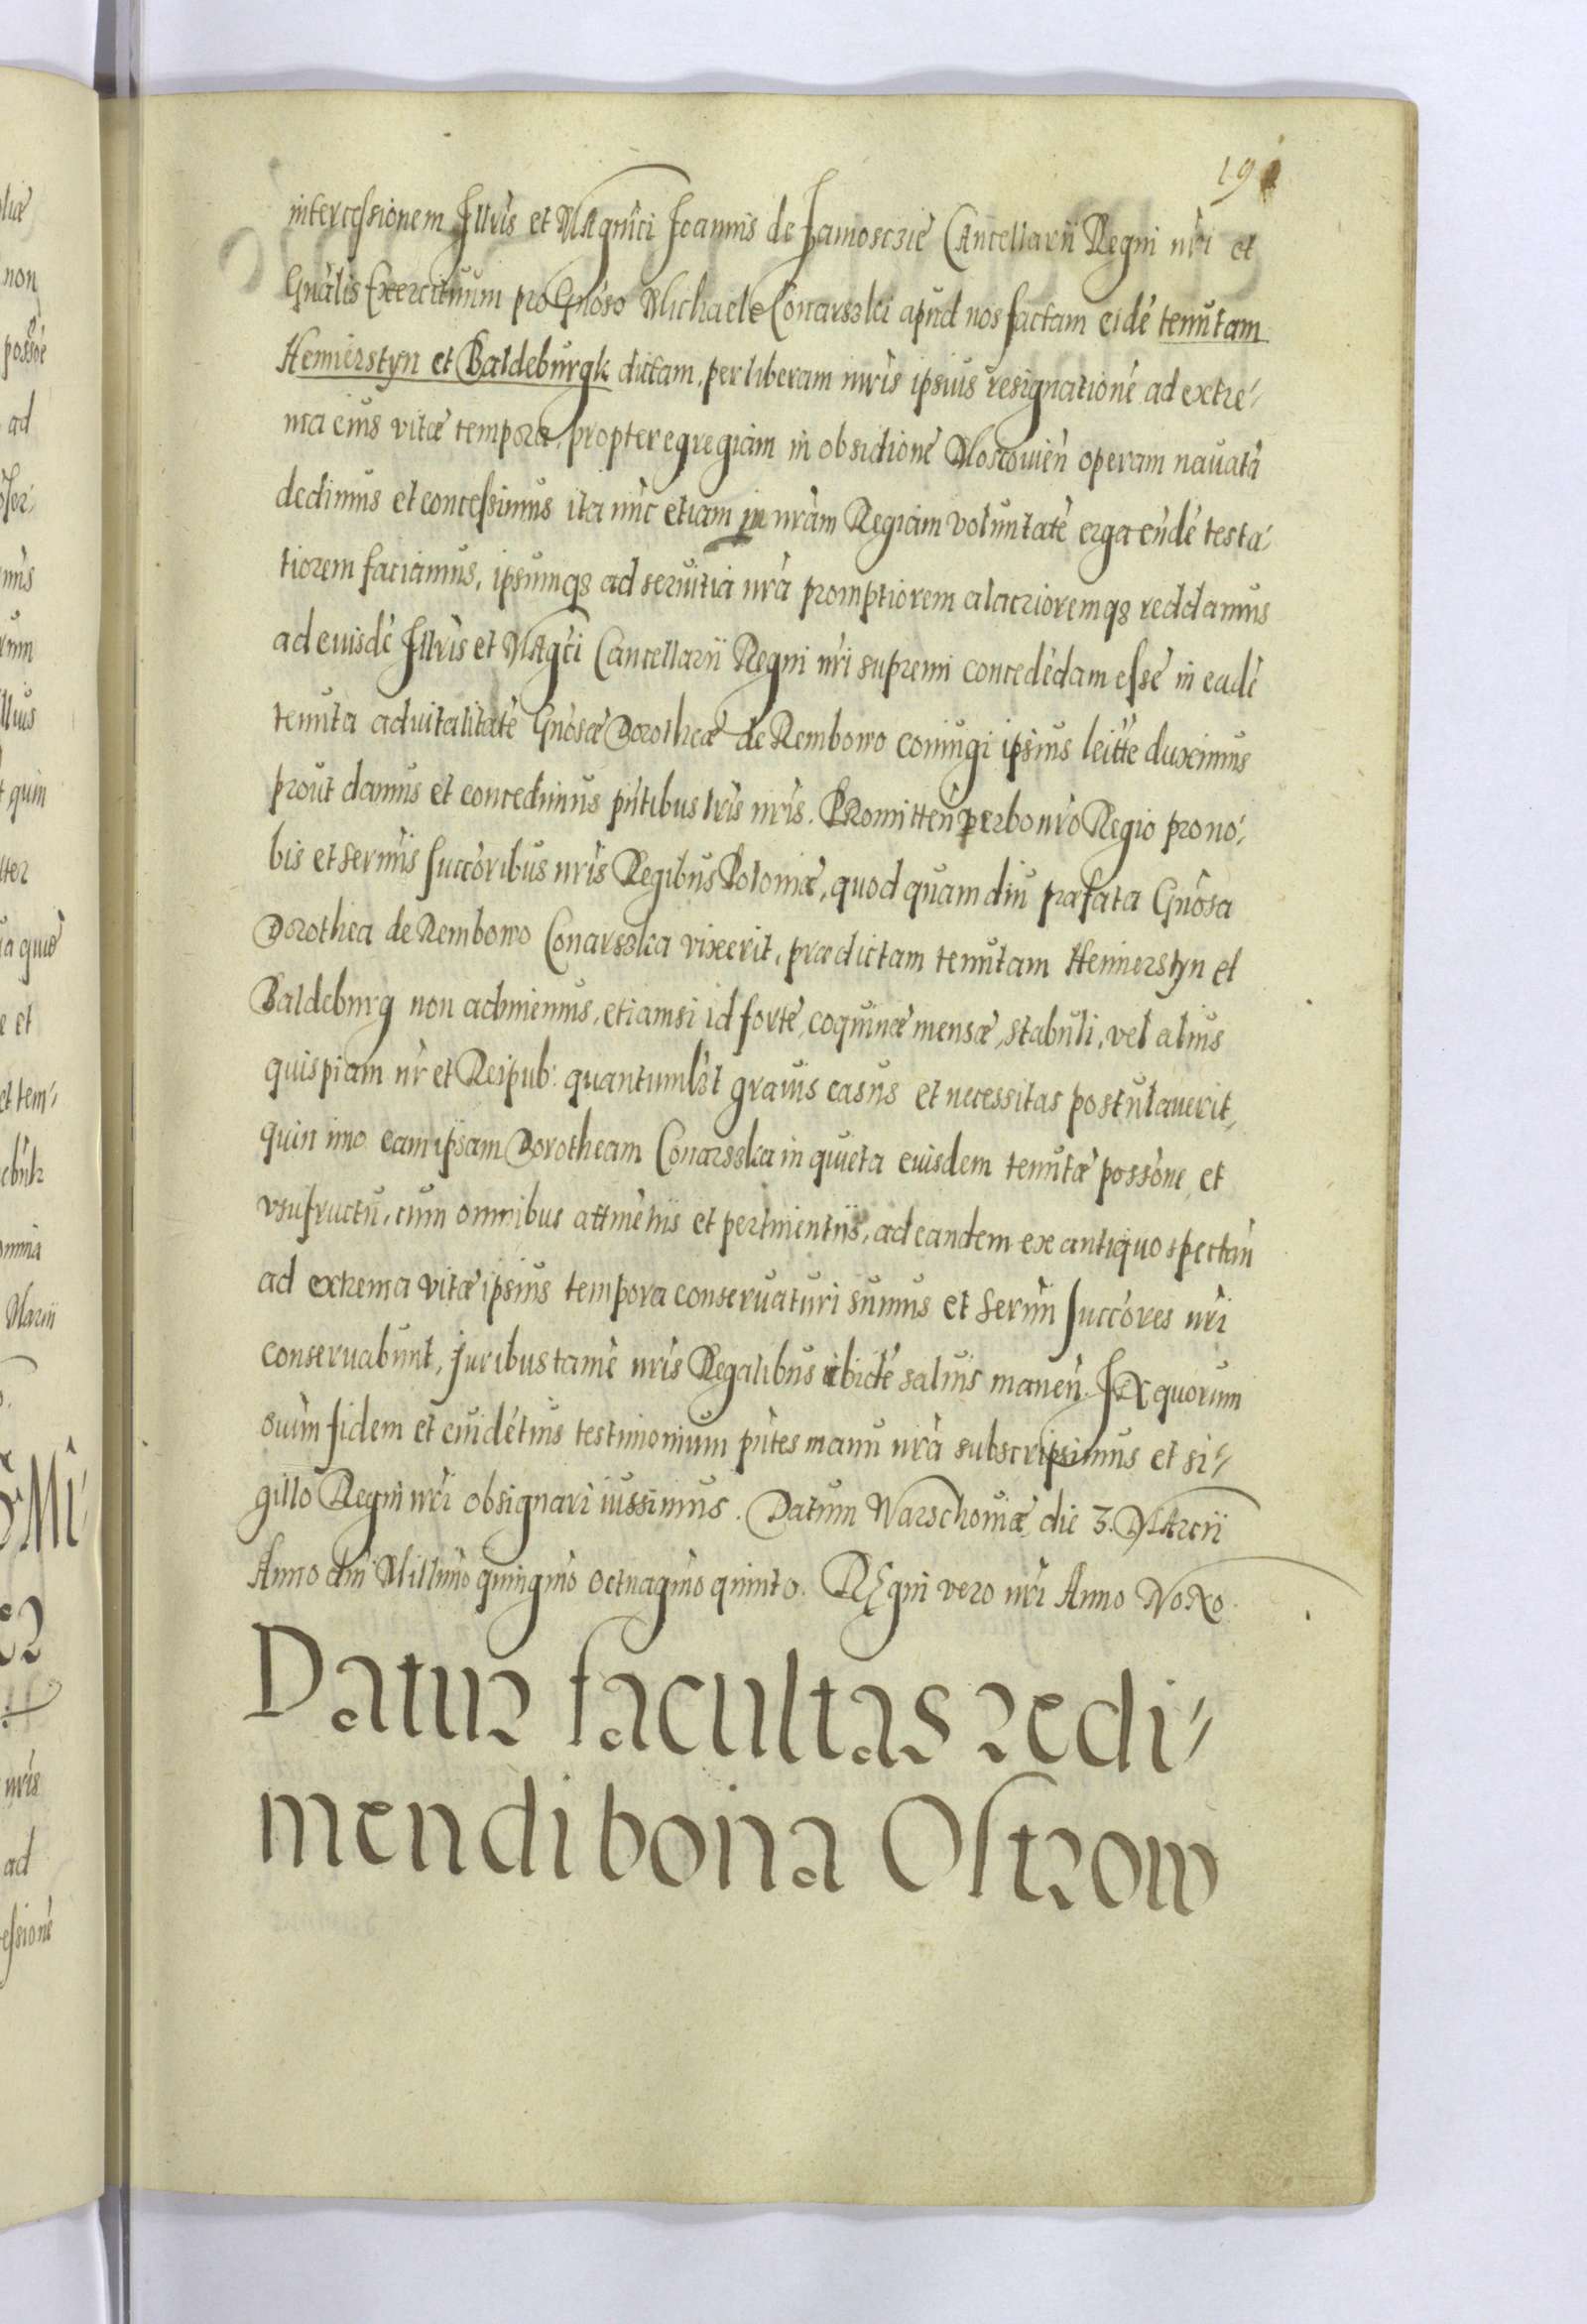 191
intercessionem Illris et Magnici Joannis de Zamosczie Cancellarii Regni nri et
Gnalis Exercituum pro Gnoso Michaele Conarszki apud nos factam eidē tenutam
Hemierstyn et Baldeburgk dictam, per liberam iuris ipsius resignationē ad extre-
ma eius vitæ tempora, propter egregiam in obsidionē Moscouien operam nauatā
dedimus et concessimus ita nūc etiam in nram Regiam voluntatē erga eūdē testa-
tiorem faciamus, ipsumqз ad seruitia nra promptiorem alacrioremqз reddamus
ad euisdē Illris et Magci Cancellarii Regni nri supremi concedēdam esse in eadē
tenuta aduitalitatē Gnosæ Dorotheæ de Rembowo coniugi ipsius duximus
prout damus et concedimus pntibus lris nris. Promitten verbo nro Regio pro no-
bis et sermis succoribus nris Regibus Poloniæ, quod quam diu præfata Gnosa
Dorothea de Rembowo Conarszka vixerit, prædictam tenutam Hemierstyn et
Baldeburg non adimemus, etiamsi id forte, coquinæ mensæ, stabuli, vel alius
quispiam nr et Reipub: quantumlзt grauis casus et necessitas postulauerit,
quin imo eam ipsam Dorotheam Conarszka in quieta euisdem tenutæ possone, et
vsufructu, cum omnibus attinētiis et pertinentiis, ad eandem ex antiquo spectan
ad extrema vitæ ipsius tempora conseruaturi sumus et serīm succores nri
conseruabunt, Juribus tamē nris Regalibus ibidē saluis manen. In quorum
ouim fidem et euidētius testimonium pntes manu nra subscripsimus et si-
gillo Regni nri obsignari iussimus. Datum Warschouiæ die 3. Marcii
Anno dni Millmo quingmo octuagmo quinto. Regni vero nri Anno Nono.
Datur facultas redi-
mendi bona Ostrow